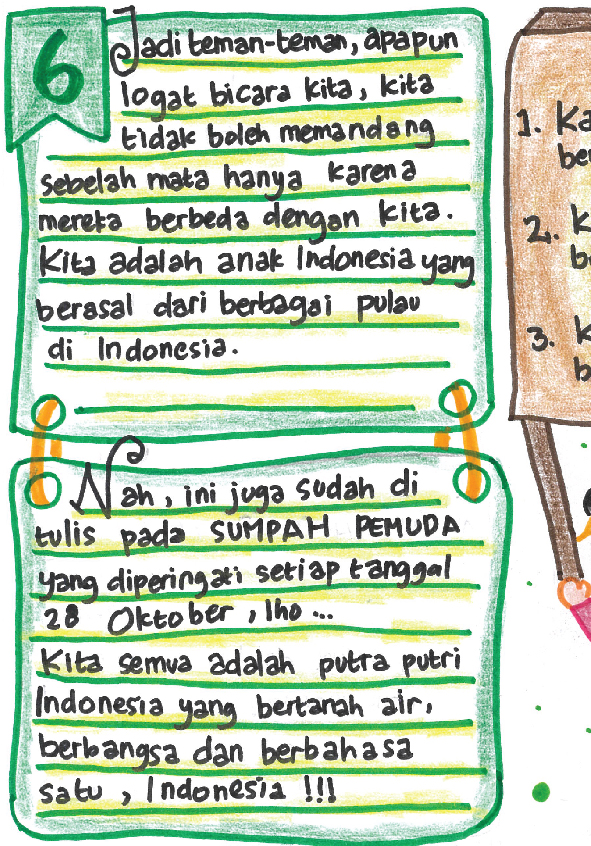 6
Jadi teman-teman, apapun
logat bicara kita, kita
tidak boleh memandang
sebelah mata hanya karena
mereka berbeda dengan kita.
Kita adalah anak Indonesia yang
berasal dari berbagai pulau
di Indonesia.
Nah, ini juga sudah di
tulis pada SUMPAH PEMUDA
yang diperingati setiap tanggal
28 Oktober, lho...
Kita semua adalah putra putri
Indonesia yang bertanah air,
berbangsa dan berbahasa
satu, Indonesia !!!
1.
2.
3.